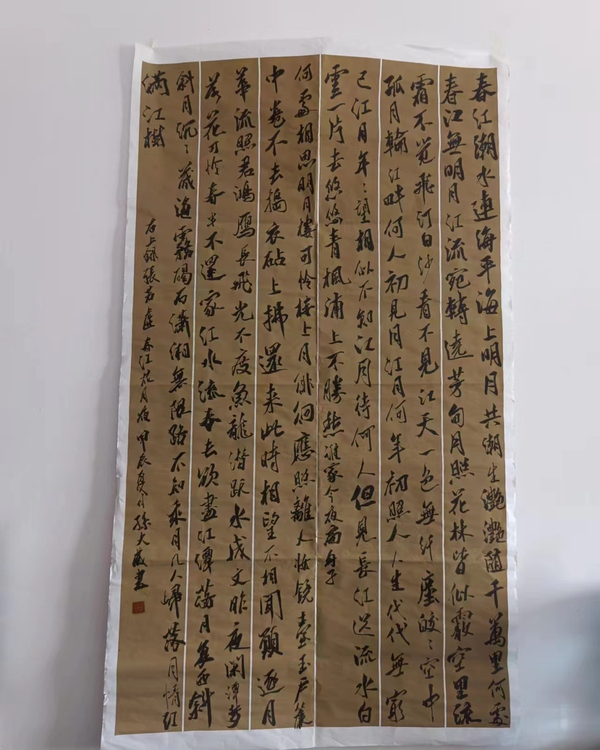 春江潮水連海平海上明月共潮生灩灩隨千萬里何處
春江無明月江流宛轉遶芳甸月照花林皆似霰空里流
霜不覺飛汀白沙看不見江天一色無纤塵皎〻空中
孤月輪江畔何人初見月江月何年初照人人生代代無窮
已江月年〻望相似不知江月待何人但見長江送流水白
雲一片去悠悠青楓浦上不勝愁誰家今夜扁舟子
何處相思明月樓可怜樓上月徘徊應照離人妝鏡臺玉戶簾
中卷不去搗衣砧上拂還來此時相望不相聞願逐月
華流照君鴻雁長飛光不度魚龍潛躍水成文昨夜闲潭夢
落花可怜春半不還家江水流春去欲盡江潭落月復西斜
斜月沉〻藏海霧碣石瀟湘無限路不知乘月几人歸落月情江
滿江樹
右上錄張若虛春江花月夜甲辰夏月孫大書